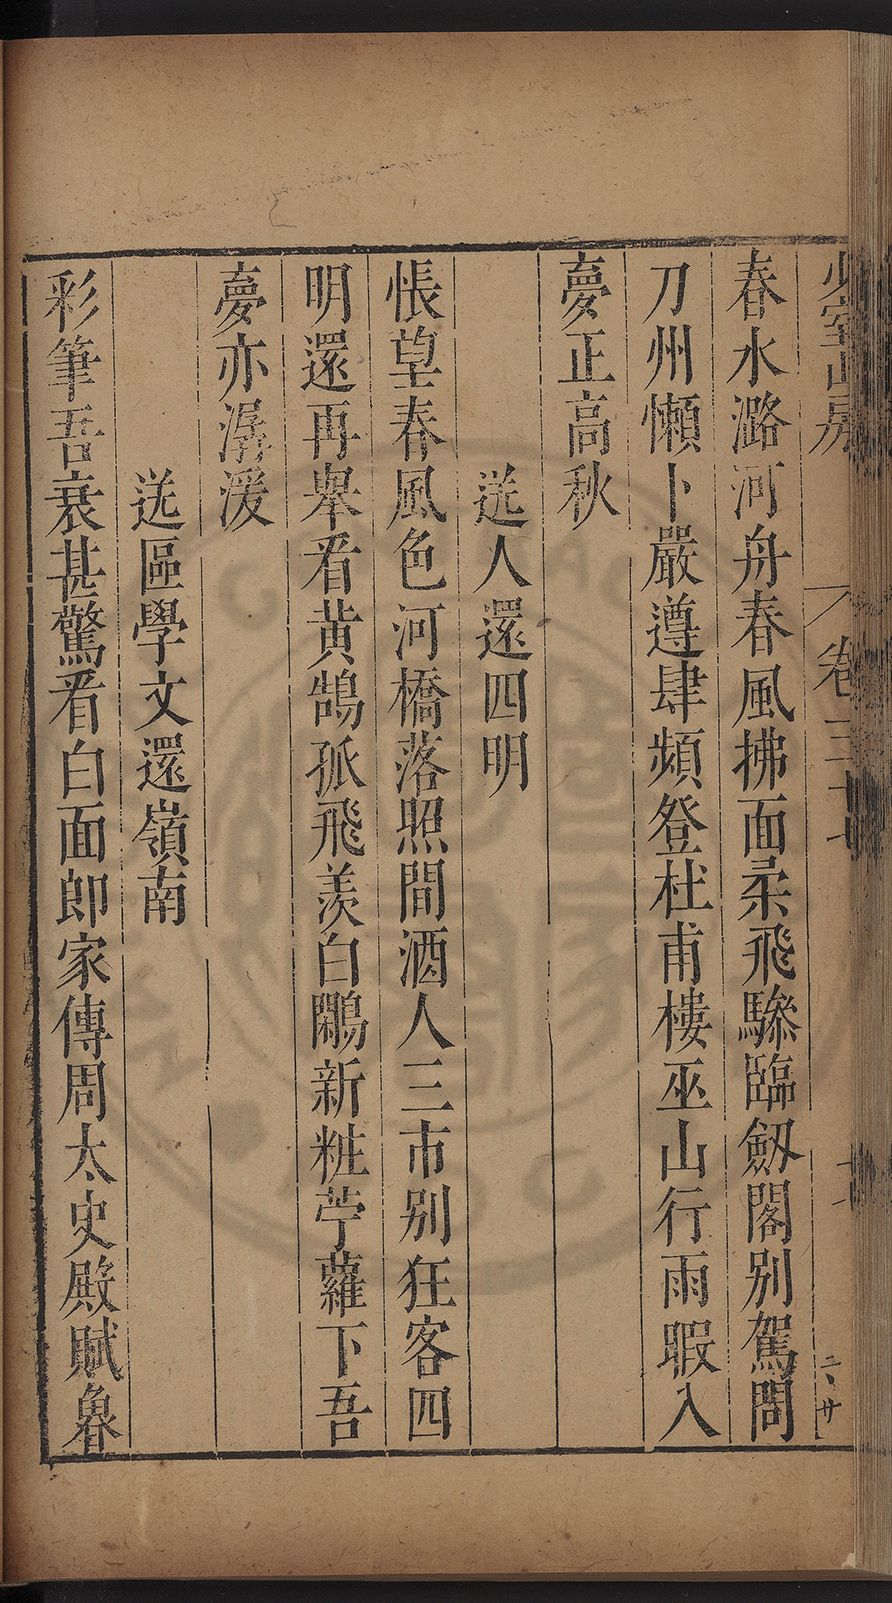 少室山房
卷三十七
春水潞河舟春風拂面柔飛驂臨劔閣别駕問
刀州懶卜嚴遵肆頻登杜甫樓巫山行雨暇入
夢正高秋
送人還四明
悵望春風色河橋落照間酒人三市别狂客四
明還再舉看黄鵠孤飛羨白鷴新粧苧蘿下吾
夢亦潺湲
送區學文還嶺南
彩筆吾衰甚驚看白面郎家傳周太史殿賦魯